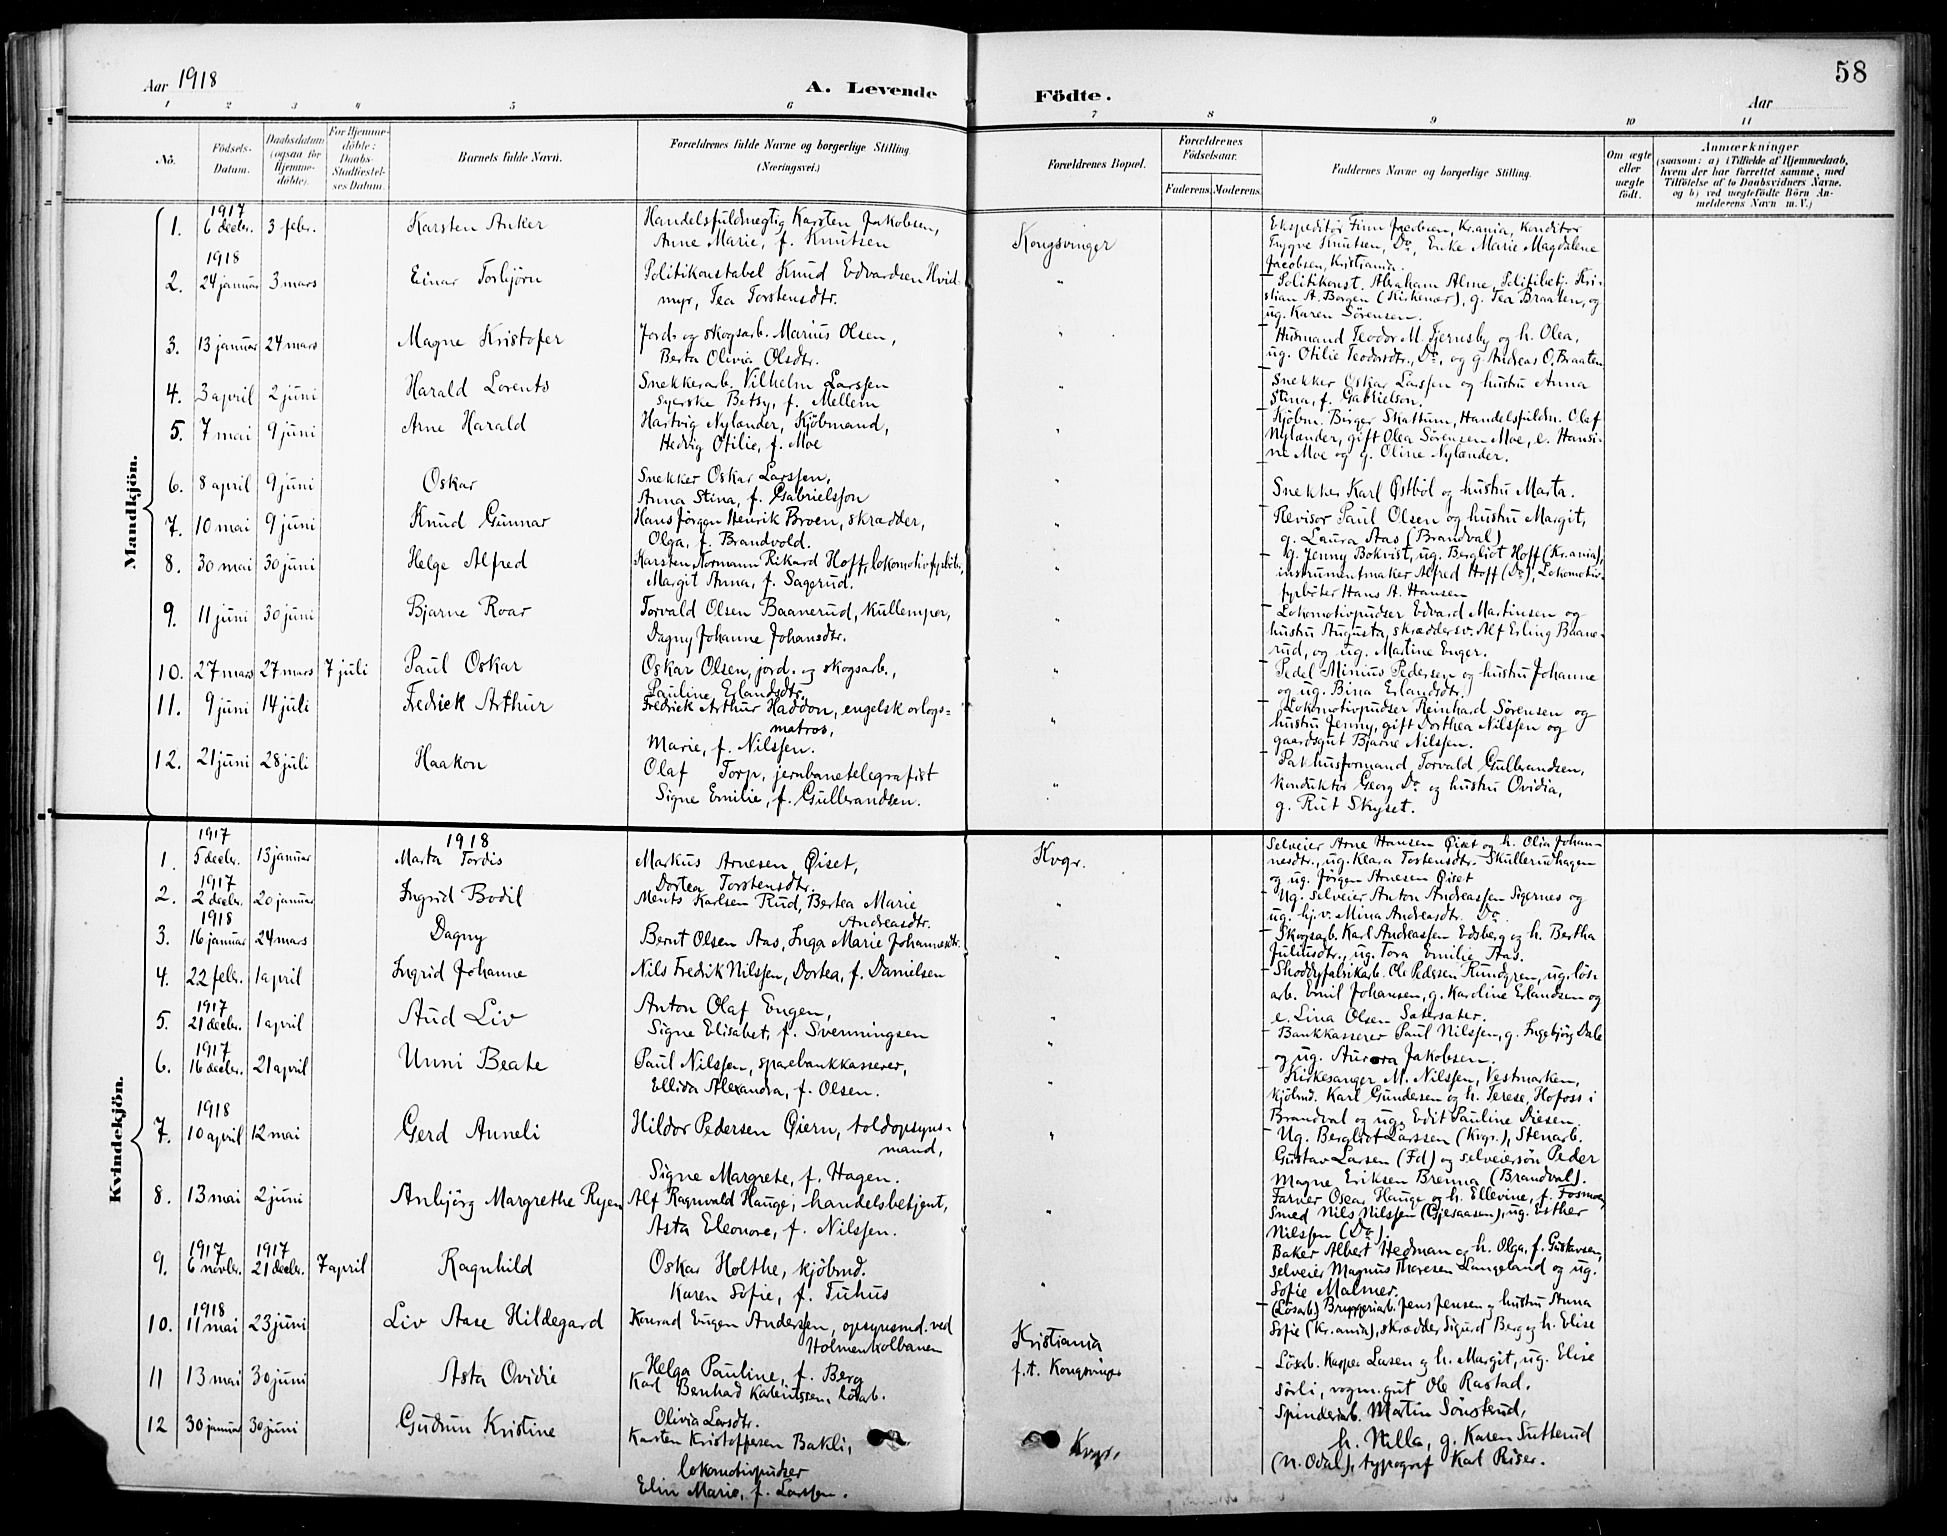 Aar 1918
A. Levende
Födte.
Aar
58
1 2 3 4 5 6 7 8 9 10 11
Nö.
Födsels-Datum.
Daabsdatum (ogsaa for Hjemme-döbte).
For Hjemme-döbte: Daabs-Stadfæstel-ses Datum.
Barnets fulde Navn.
Forældrenes fulde Navne og borgerlige Stilling (Næringsvei.)
Forældrenes Bopæl.
Forældrenes Födselsaar.
Faderens. Moderens.
Faddernes Navne og borgerlige Stilling.
Om ægte eller uægte født.
Anmærkninger
(saasom: a) i Tilfælde af Hjemmedaab,
hvem der har forrettet samme, med
Tilföielse af to Daabsvidners Navne.
og b) ved uægtefödte Börn An-
melderens Navn m. V.)
Mandkjön.
1. 1917 6 decbr. 3 febr. Karsten Anker
Handelsfuldmegtig Karsten Jakobsen,
Anne Marie, f. Knutsen
Kongsvinger
Ekspeditør Finn Jacobsen, Kr.ania, Konditor
Trygve Knutsen, Do, Enke Marie Magdalene
Jacobsen, Kristiania.
2. 1918 24 januar 3 mars Einar Torbjörn
Politikonstabel Knud Edvardsen Hvid-
myr, Tea Torstensdtr.
"
Politikonst. Abraham Alme, Politibetj. Kri-
stian A. Borgen (Kirkenær), g. Tea Braaten, og
ug. Karen Sörensen.
3. 13 januar 24 mars Magne Kristofer
Jord- og skogsarb. Marius Olsen,
Berta Olivia Olsdtr.
"
Husmand Teodor M. Tjernsby og h. Olea,
ug. Otilie Teodorsdtr., Do, og g. Andreas O. Braaten
4. 3 april 2 juni Harald Lorents
Snekkerarb. Vilhelm Larssen
syerske Betsy, f. Mellem
"
Snekker Oskar Larssen og hustru Anna
Stina, f. Gabrielson.
5. 7 mai 9 juni Arne Harald
Hartvig Nylænder, Kjöbmand,
Hedvig Otilie, f. Moe
"
Kjöbm. Birger Skattum, Handelsfuldm. Olaf
Nylænder, gift Olea Sörensen Moe, e. Hansi-
ne Moe og g. Oline Nylænder.
6. 8 april 9 juni Oskar
Snekker Oskar Larssen,
Anna Stina, f. Gabrielsson
"
Snekker Karl Østböl og hustru Marta.
7. 10 mai 9 juni Knud Gunnar
Hans Jörgen Henrik Broen, skrædder,
Olga, f. Brandvold.
"
Revisor Paul Olsen og hustru Margit,
g. Laura Aas (Brandval)
8. 30 mai 30 juni Helge Alfred
Karsten Normann Rikard Hoff, lokomotivfyrböter,
Margit Anna, f. Sagerud.
"
g. Jenny Bokvist, ug. Bergliot Hoff (Kr.ania),
instrumentmaker Alfred Hoff (Do), Lokomotiv-
fyrböter Hans A. Hansen
9. 11 juni 30 juni Bjarne Roar
Torvald Olsen Baanerud, kullemper,
Dagny Johanne Johansdtr.
"
Lokomotivpudser Edvard Martinsen og
hustru Augusta, skræddersv. Alf Erling Baane-
rud, og ug. Martine Enger.
10. 27 mars 27 mars 7 juli Paul Oskar
Oskar Olsen, jord- og skogsarb.,
Pauline Erlandsdtr.
"
Pedel Minius Pedersen og hustru Johanne
og ug. Bina Erlandsdtr.
11. 9 juni 14 juli Fedrick Arthur
Fredrick Arthur Haddon, engelsk orlogs-
matros,
Marie, f. Nilssen.
"
Lokomotivpudser Reinhard Sörensen og
hustru Jenny, gift Dorthea Nilssen og
gaardsgut Bjarne Nilssen.
12. 21 juni 28 juli Haakon
Olaf Torp, jernbanetelegrafist
Signe Emilie, f. Gulbrandsen.
"
Pakhusformand Torvald Gulbrandsen,
konduktör Georg Do og hustru Ovidia,
g. Rut Skyset.
Kvindekjön.
1918
1. 1917 5 decbr. 13 januar Marta Tordis
Markus Arnesen Øiset,
Dortea Torstensdtr.
Kvgr.
Selveier Arne Hansen Øiset og h. Olia Johan-
nesdtr., ug. Klara Tostensdtr. Skullerudhagen
og ug. Jörgen Arnesen Øiset
2. 1917 2 decbr. 20 januar Ingrid Bodil
Ments Karlsen Rud, Bertea Marie
Andreasdtr.
"
Ug. selveier Anton Andreassen Sigernes og
ug. hj.v. Mina Andreasdtr. Do
3. 1918 16 januar 24 mars Dagny
Bernt Olsen Aas, Inga Marie Johannesdtr.
"
Skogsarb. Karl Andreassen Edsberg og h. Bertha
Juliusdtr., ug. Tora Emilie Aas.
4. 22 febr. 1 april Ingrid Johanne
Nils Fredik Nilssen, Dortea, f. Danielsen
"
Shoddyfabrikarb. Ole Pedersen Rundgren, ug. løs-
arb. Emil Johansen, g. Karoline Erlandsen og
e. Lina Olsen Sætersæter.
5. 1917 21 decbr. 1 april Aud Liv
Anton Olaf Engen,
Signe Elisabet, f. Svenningsen
"
Bankkasserer Paul Nilssen, g. Ingebjørg Dale
og ug. Aurora Jakobsen.
6. 1917 16 decbr. 21 april Unni Beate
Paul Nilssen, sparebankkasserer,
Ellida Alexandra, f. Olsen.
"
Kirkesanger M. Nilssen, Vestmarken,
kjöbmd. Karl Gundersen og h. Terese, Hofoss i
Brandval og ug. Edit Pauline Diesen.
7. 1918 10 april 12 mai Gerd Anneli
Hildor Pedersen Øiern, toldopsyns-
mand,
Signe Margrete, f. Hagen.
"
Ug. Bergliot Larssen (Kvgr.), Stenarb.
Gustav Larsen (Fd) og selveiersön Peder
Magne Eriksen Brenna (Brandval).
8. 13 mai 2 juni Anbjörg Margrethe Ryen
Alf Ragnvald Hauge, handelsbetjent,
Asta Eleonore, f. Nilssen.
"
Farver Oscar Hauge og h. Ellevine, f. Fosmoen,
Smed Nils Nilssen (Gjesaasen), ug. Esther
Nilssen (Do).
9. 1917 6 novbr. 1917 21 decbr. 7 april Ragnhild
Oskar Holthe, kjöbmd.
Karen Sofie, f. Tuhus
"
Baker Albert Hedman og h. Olga, f. Gustavsen,
selveier Magnus Theresen Langeland og ug.
Sofie Malmer.
10. 1918 11 mai 23 juni Liv Aase Hildegard
Konrad Eugen Andersen, opsynsmd. ved
Holmenkolbanen
Helga Pauline, f. Berg
Kristiania
f.t. Kongsvinger
(Lösarb) Bryggeriarb. Jens Jensen og hustru Anna
Sofie (Kr.ania), skrædder Sigurd Berg og h. Elise
11 13 mai 30 juni Asta Ovidie
Karl Bernhard Katerussen, lösarb.
Olivia Larsdtr.
Lösarb. Kasper Larsen og h. Margit, ug. Elise
Sörli, vogm.gut Ole Rastad.
12 30 januar 30 juni Gudrun Kristine
Karsten Kristoffersen Bakli,
lokomotivpudser
Elin Marie, f. Larssen.
Kvgr.
Spinderiarb. Martin Sönsterud,
h. Nilla, g. Karen Sutterud
(N. Odal), typograf Karl Riser.